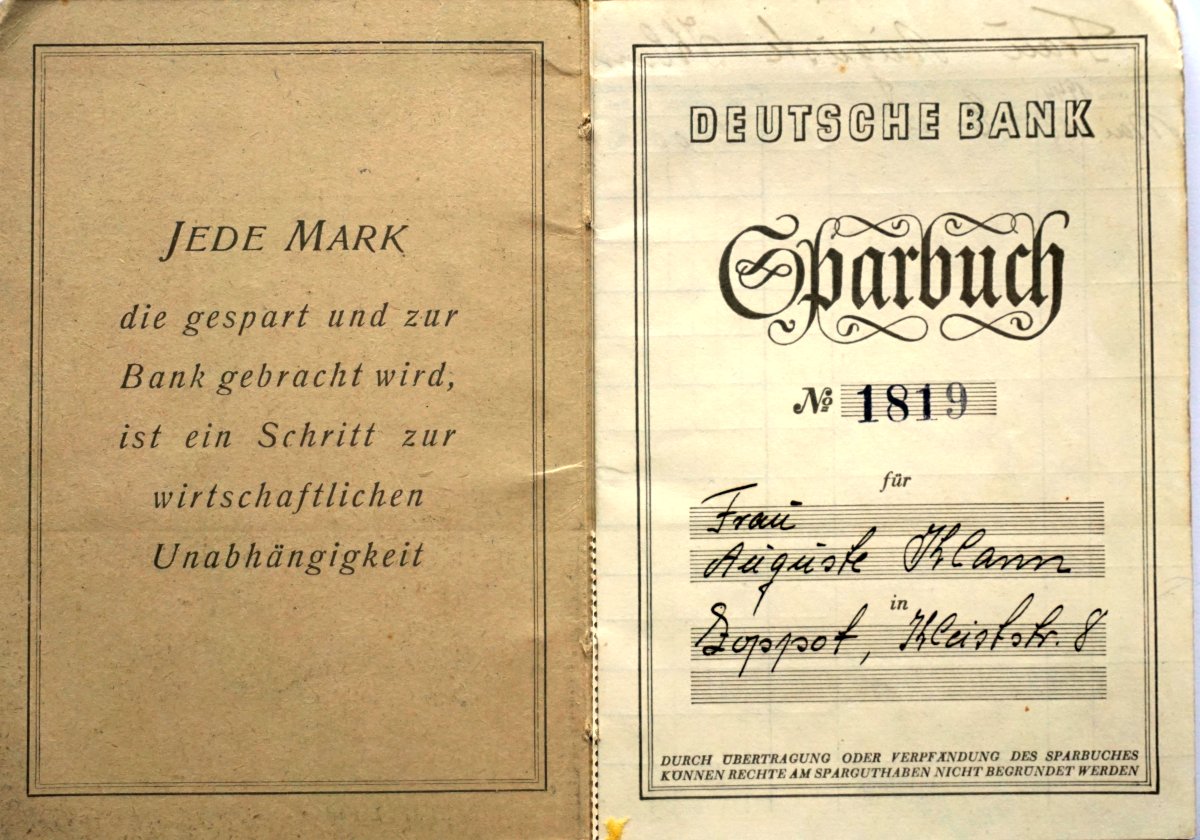 JEDE MARK
die gespart und zur
Bank gebracht wird,
ist ein Schritt zur
wirtschaftlichen
Unabhängigkeit
DEUTSCHE BANK
Sparbuch
No 1819
für
Frau
Auguste Klann
in
Zoppot, Kleiststr. 8
DURCH ÜBERTRAGUNG ODER VERPFÄNDUNG DES SPARBUCHES
KÖNNEN RECHTE AM SPARGUTHABEN NICHT BEGRÜNDET WERDEN